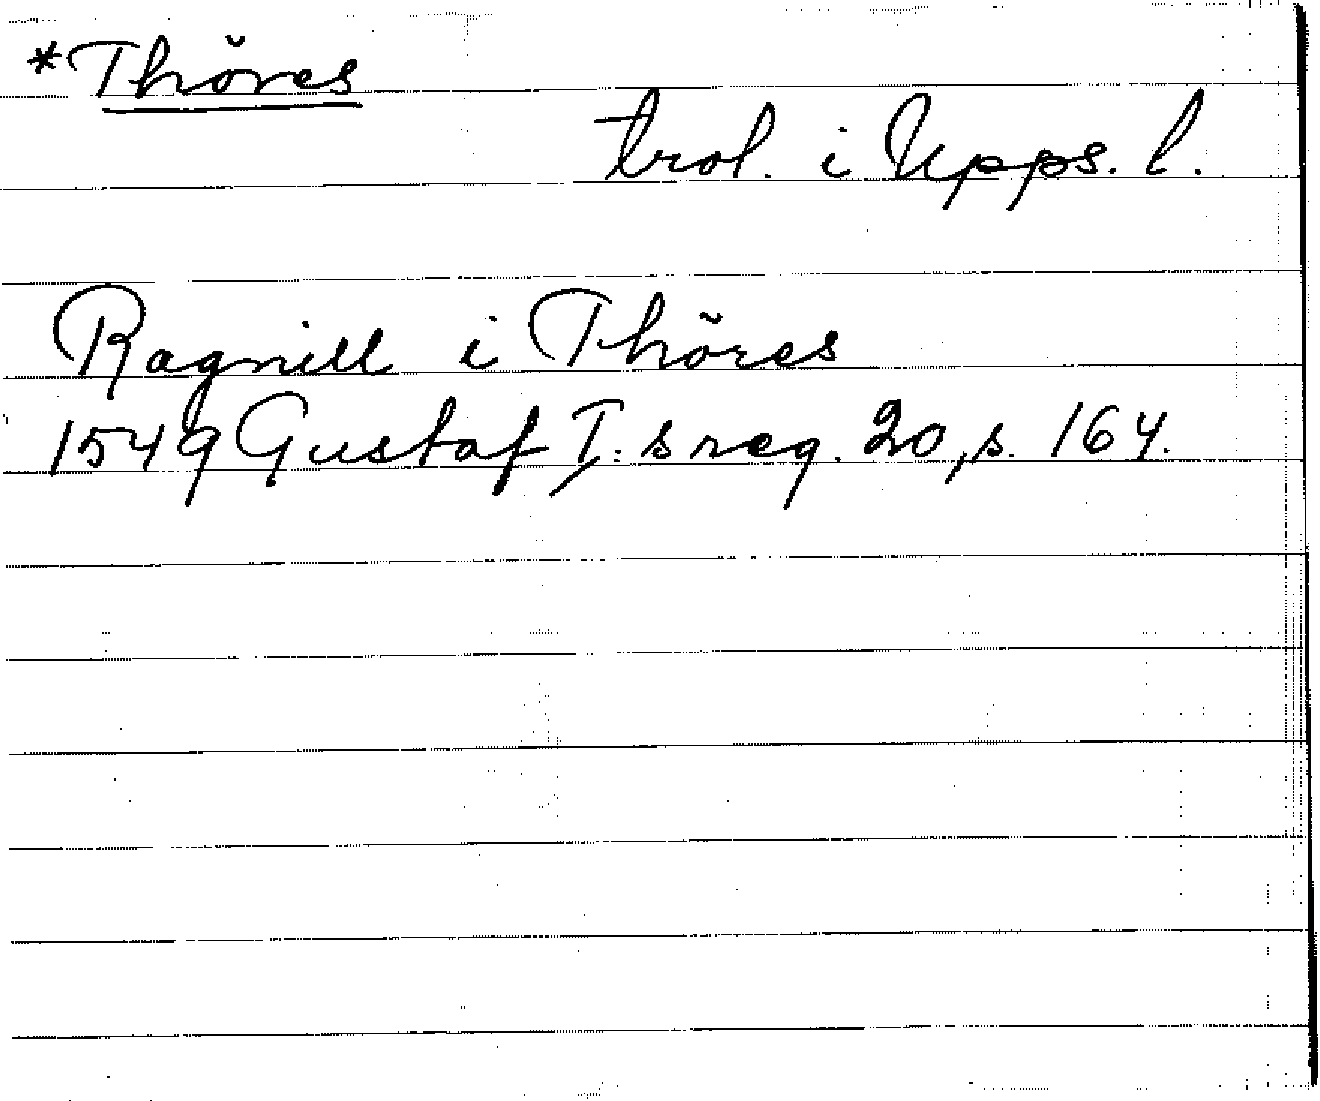 *Thöres
trol. i Upps. l.
Ragnill i Thöres
1549 Gustaf I:s reg. 20, s. 164.